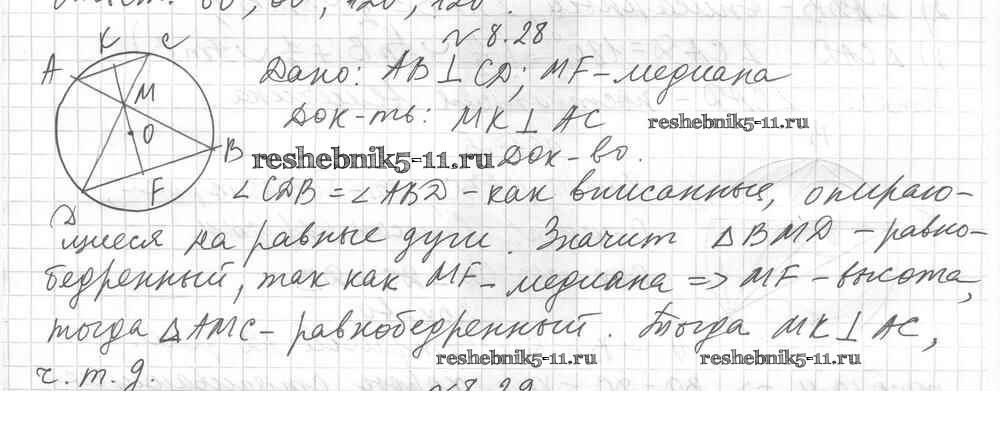 N 8.28
K C
A
Дано: AB ⊥ CD; MF – медиана
M
Док-ть: MK ⊥ AC
reshebnik5-11.ru
O
B
reshebnik5-11.ru
Док-во.
F
∠CDB = ∠ABD – как вписанные, опираю-
D
щиеся на равные дуги. Значит △BMD – равно-
бедренный, так как MF – медиана => MF – высота,
тогда △AMC – равнобедренный. Тогда MK ⊥ AC,
reshebnik5-11.ru
reshebnik5-11.ru
ч.т.д.
N 8.29